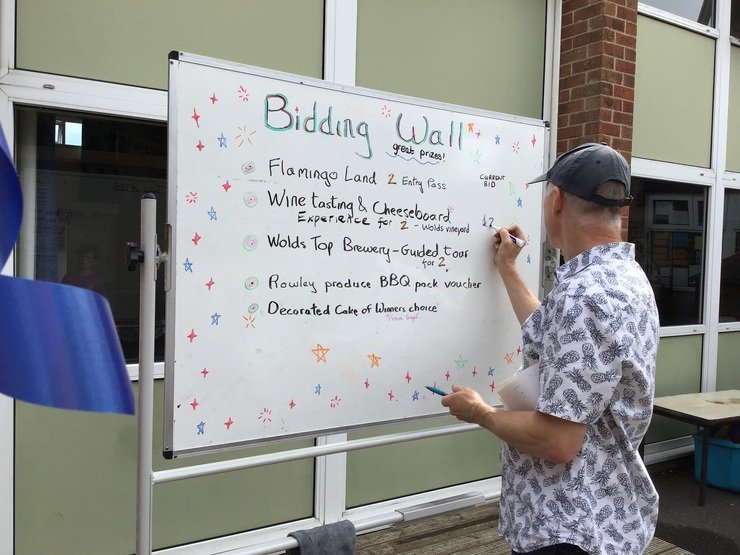 Bidding Wall
great prizes!
CURRENT
BID
Flamingo Land 2 Entry Pass
Wine tasting & Cheeseboard
Experience for 2 - Wolds vineyard
Wolds Top Brewery - Guided tour
for 2
Rowley produce BBQ pack voucher
Decorated Cake of Winners choice